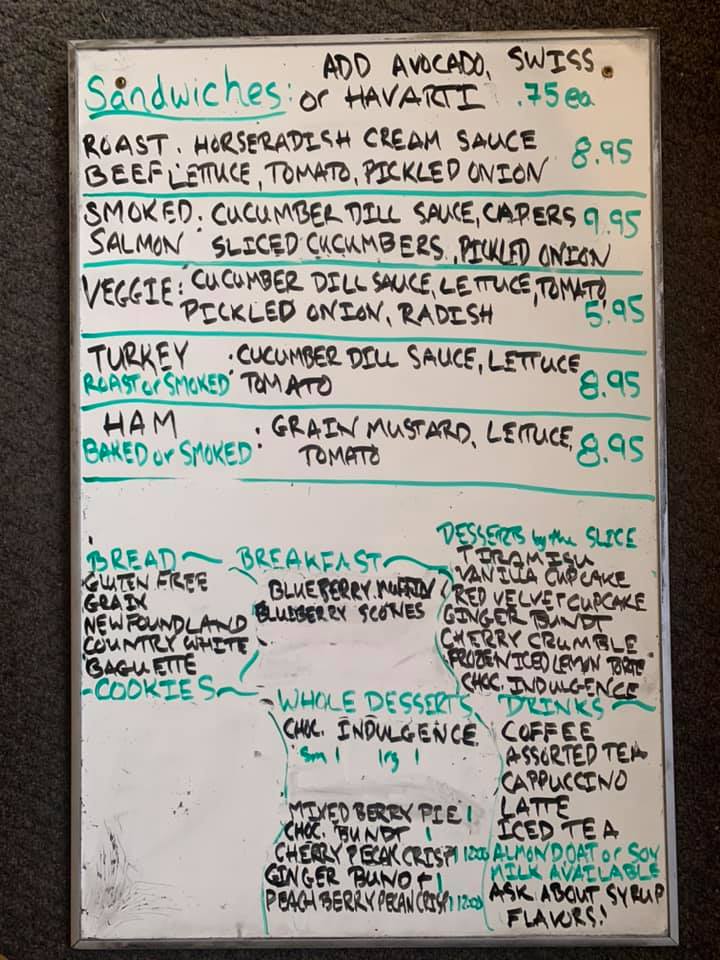 Sandwiches: ADD AVOCADO, SWISS
or HAVARTI .75 ea
ROAST . HORSERADISH CREAM SAUCE 8.95
BEEF LETTUCE, TOMATO, PICKLED ONION
SMOKED : CUCUMBER DILL SAUCE, CAPERS 9.95
SALMON SLICED CUCUMBERS, PICKLED ONION
VEGGIE : CUCUMBER DILL SAUCE, LETTUCE, TOMATO,
PICKLED ONION, RADISH 5.95
TURKEY : CUCUMBER DILL SAUCE, LETTUCE
ROAST or SMOKED TOMATO 8.95
HAM : GRAIN MUSTARD, LETTUCE,
BAKED or SMOKED TOMATO 8.95
BREAD
GLUTEN FREE
GRAIN
NEWFOUNDLAND
COUNTRY WHITE
BAGUETTE
COOKIES
BREAKFAST
BLUEBERRY MUFFIN
BLUEBERRY SCONES
DESSERTS by the SLICE
TIRAMISU
VANILLA CUPCAKE
RED VELVET CUPCAKE
GINGER BUNDT
CHERRY CRUMBLE
FROZEN ICED LEMON TORTE
CHOC. INDULGENCE
WHOLE DESSERTS
CHOC. INDULGENCE
Sm 1 lrg 1
MIXED BERRY PIE 1
CHOC. BUNDT 1
CHERRY PECAN CRISP 1 12:00
GINGER BUNDT 1
PEACH BERRY PECAN CRISP 1 12:00
DRINKS
COFFEE
ASSORTED TEA
CAPPUCCINO
LATTE
ICED TEA
ALMOND OAT or SOY
MILK AVAILABLE
ASK ABOUT SYRUP
FLAVORS!